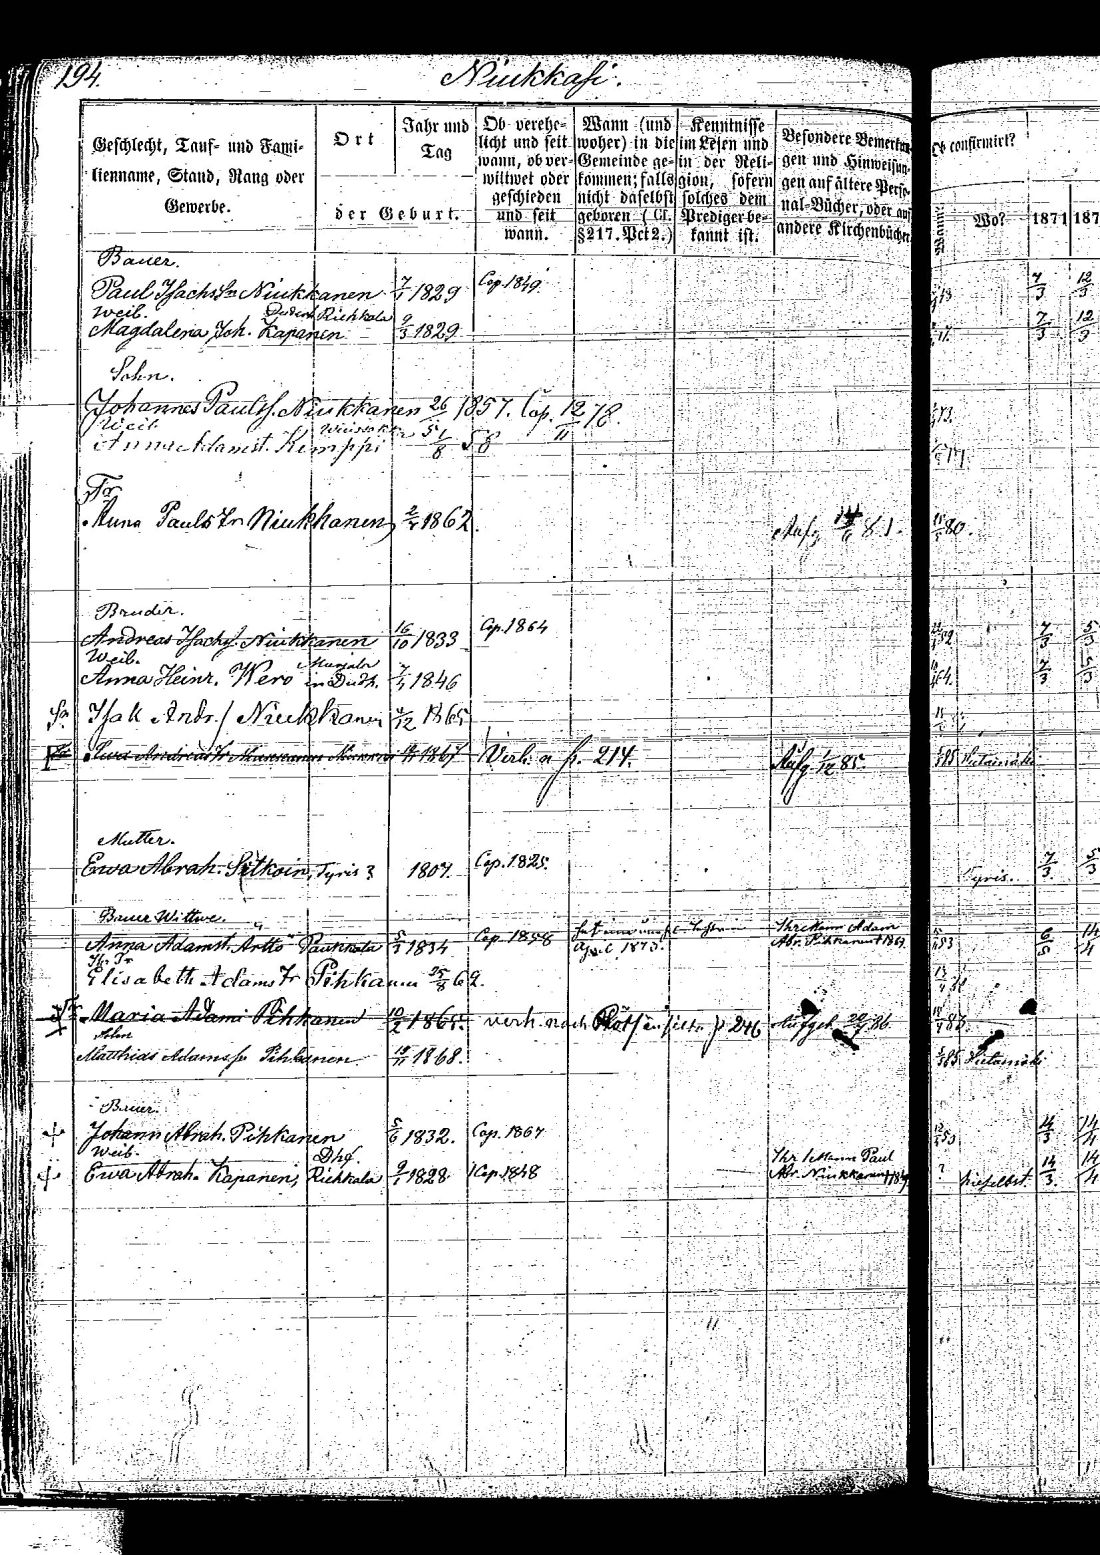 194.
Niukkasi.
Geschlecht, Tauf- und Fami-
lienname, Stand, Rang oder
Gewerbe.
Ort
Jahr und
Tag
der Geburt.
Ob verehe-
licht und seit
wann, ob ver-
wittwet oder
geschieden
und seit
wann.
Wann (und
woher) in die
Gemeinde ge-
kommen; falls
nicht daselbst
geboren (Cf.
§217. Pct 2.)
Kenntnisse
im Lesen und
in der Reli-
gion, sofern
solches dem
Prediger be-
kannt ist.
Besondere Bemerkun-
gen und Hinweisun-
gen auf ältere Perso-
nal-Bücher, oder auf
andere Kirchenbücher
Ob confirmirt?
Wann?
Wo?
1871
187
Bauer.
Paul Isachs Sn Niukkanen 7/1 1829 Cop. 1849 7/3 12/3
Weib.
Richkala
Magdalena, Joh. Kapanen 9/3 1829 7/3 12/3
Sohn.
Johannes Paulss. Niukkanen 26/5 1857. Cop. 12/11 78.
Weib
Anna Adamst. Kemppi 1/8 58
Tr
Anna Pauls Tr Niukkanen 1862. Aufg 14/6 81. 80.
Bruder.
Andreas Isachs. Niukkanen 16/10 1833 Cop. 1864 7/3 5/3
Weib.
Anna Heinr. Wero in Dudh. 1846 64. 7/3 5/3
Sn. Isak Andr. Niukkanen /12 1865
Ewa Andreas Tr Niukkanen 1867 Verh. n p. 214. Aufg. 1/12 85. 85 Hietamäki
Mutter.
Ewa Abrah. Sitkoin, Tyris? 1807. Cop. 1825. Tyris. 7/3 5/3
Bauer Wittwe.
Anna Adamst. Artto Paukkala 5/3 1834 Cop. 1858 April 1873. Ihr Mann Adam
Abr. Pihkanen 53 6/5 14/4
Tr
Elisabeth Adams Tr Pihkanen 25/8 62.
Maria Adams Pihkanen 10/2 1865. verh. nach p 246 Aufgeb 20/7 86
Sohn
Matthias Adamss. Pihkanen 19/11 1868. 85 Hietamäki
Bauer.
Johann Abrah. Pihkanen 5/6 1832. Cop. 1867 53 14/3 14/4
Weib.
Dhf.
Ewa Abrah. Kapanen, Richkala 9/1 1828 Cop. 1848 Ihr 1 Mann Paul
Abr. Niukkanen ? hieselbst. 14/3 14/4